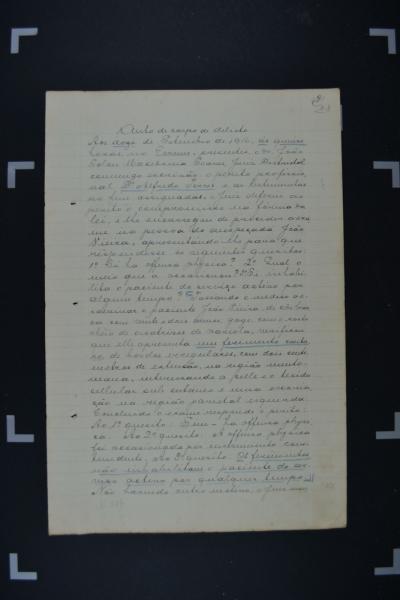 Auto de corpo de delicto
Aos doze de Setembro de 1916, ás quinze
horas, no Forum, presentes, o Sr. João
Soares, Juiz Districtal
commigo escrivão, o perito profissio-
nal Dr Alfredo e as testemunhas
no fim assignadas, o Juiz deferio ao
perito o compromisso na forma da
lei, e lhe encarregou de proceder exa-
me na pessoa do offendido João
Vieira, apresentando-lhe para que
respondesse os seguintes quesitos:
1º Si ha offensa physica? 2º Qual o
meio que a occasionou? 3º Si inhabi-
lita o paciente do serviço activo por
algum tempo? Passando o medico a e-
xaminar o paciente João Vieira,
com vinte e dois annos,
de cicatrizes de variola, verificou
que elle apresenta um ferimento contu-
so de bordos irregulares, com dois centi-
metros de extensão, na região
interessando a pelle e o tecido
cellular sub cutaneo e uma escoria-
ção na região parietal esquerda.
Concluido o exame responde o perito:
Ao 1º quesito: Sim - ha offensa physi-
ca. Ao 2º quesito: A offensa physica
foi occasionada por instrumento con-
tundente. Ao 3º quesito: Os ferimentos
não inhabilitam o paciente do ser-
viço activo por qualquer tempo.
Não havendo outro mesmo, o Juiz